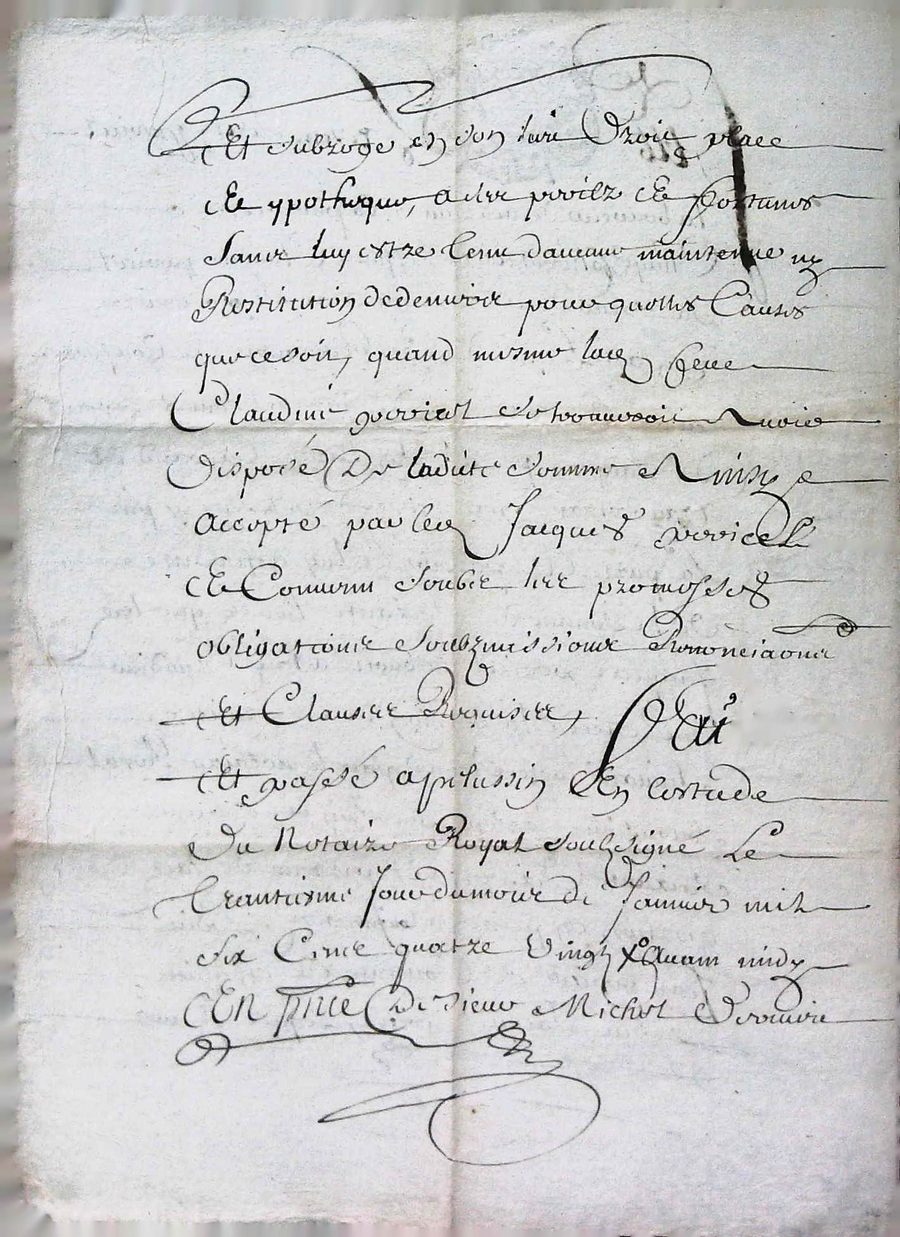 Et subroge en son lieu Droit place
Et ypotheque, a ses perilz Et fortunes
sans luy estre tenu daucune maintenue ny
Restitution de deniers pour quelles Causes
que ce soit, quand mesme lad
Claudine se trouveroit avoir
disposé De ladite somme Ainsy
accepté par led Jacques
Et Convenu soubz les promesses
obligations soubzmissions Renonciaons
Et Clauses Requises, fait
Et passé a pelussin En lestude
Du Notaire Royal soubzsigné Le
trantiesme Jour du mois de Janvier mil
six Cens quatre vingt avant midy
En pnce De sieur Michel